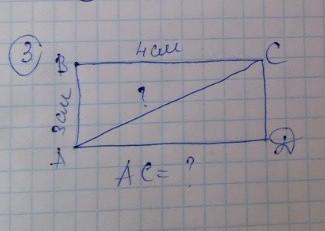 3
4см
B C
3см
?
A D
AC = ?